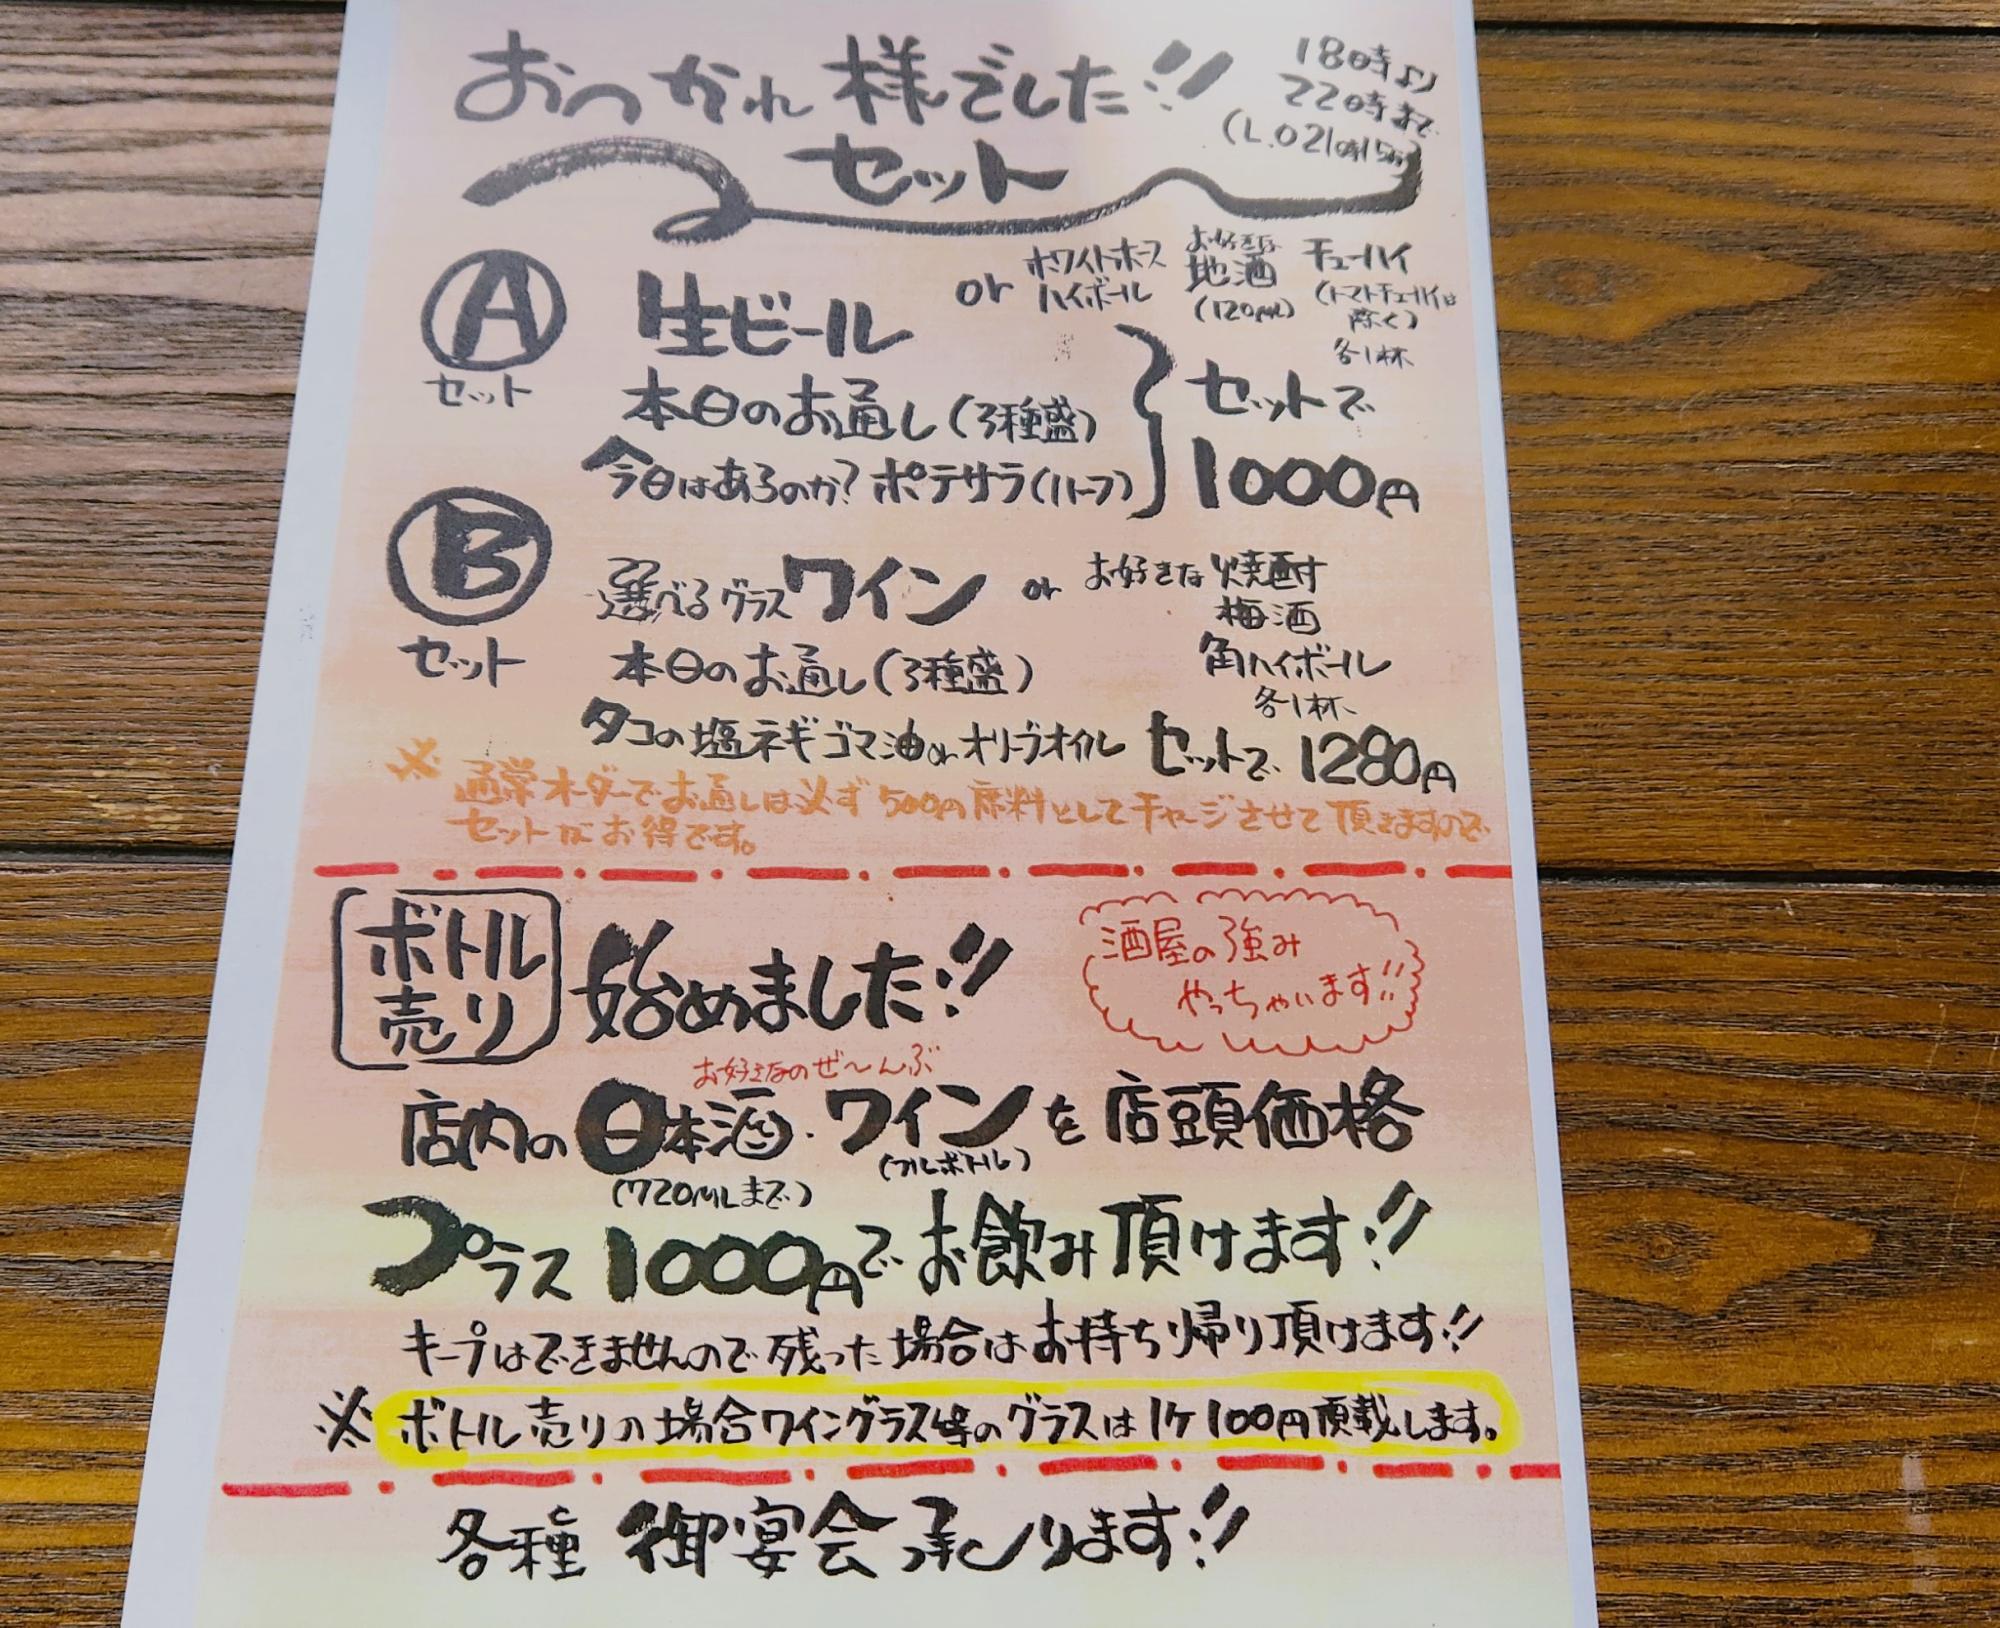 おつかれ様でした!!
セット
18時より
22時まで
(L.O21時15分)
Ⓐ
セット
生ビール
or
ホワイトホース
ハイボール
お好きな
地酒
(120ML)
チューハイ
(トマトチューハイは
除く)
各1杯
本日のお通し(3種盛)
今日はあるのか?ポテサラ(ハーフ)
セットで
1000円
Ⓑ
セット
選べるグラスワイン or お好きな焼酎
梅酒
角ハイボール
各1杯
本日のお通し(3種盛)
タコの塩ネギゴマ油orオリーブオイル セットで 1280円
※通常オーダーでお通しは必ず500円席料としてチャージさせて頂きますので
セットがお得です。
ボトル
売り
始めました!!
酒屋の強み
やっちゃいます!!
お好きなのぜ〜んぶ
店内の日本酒・ワインを店頭価格
(720MLまで)
(フルボトル)
プラス1000円でお飲み頂けます!!
キープはできませんので残った場合はお持ち帰り頂けます!!
※ボトル売りの場合ワイングラス等のグラスは1ケ100円頂戴します。
各種 御宴会承ります!!